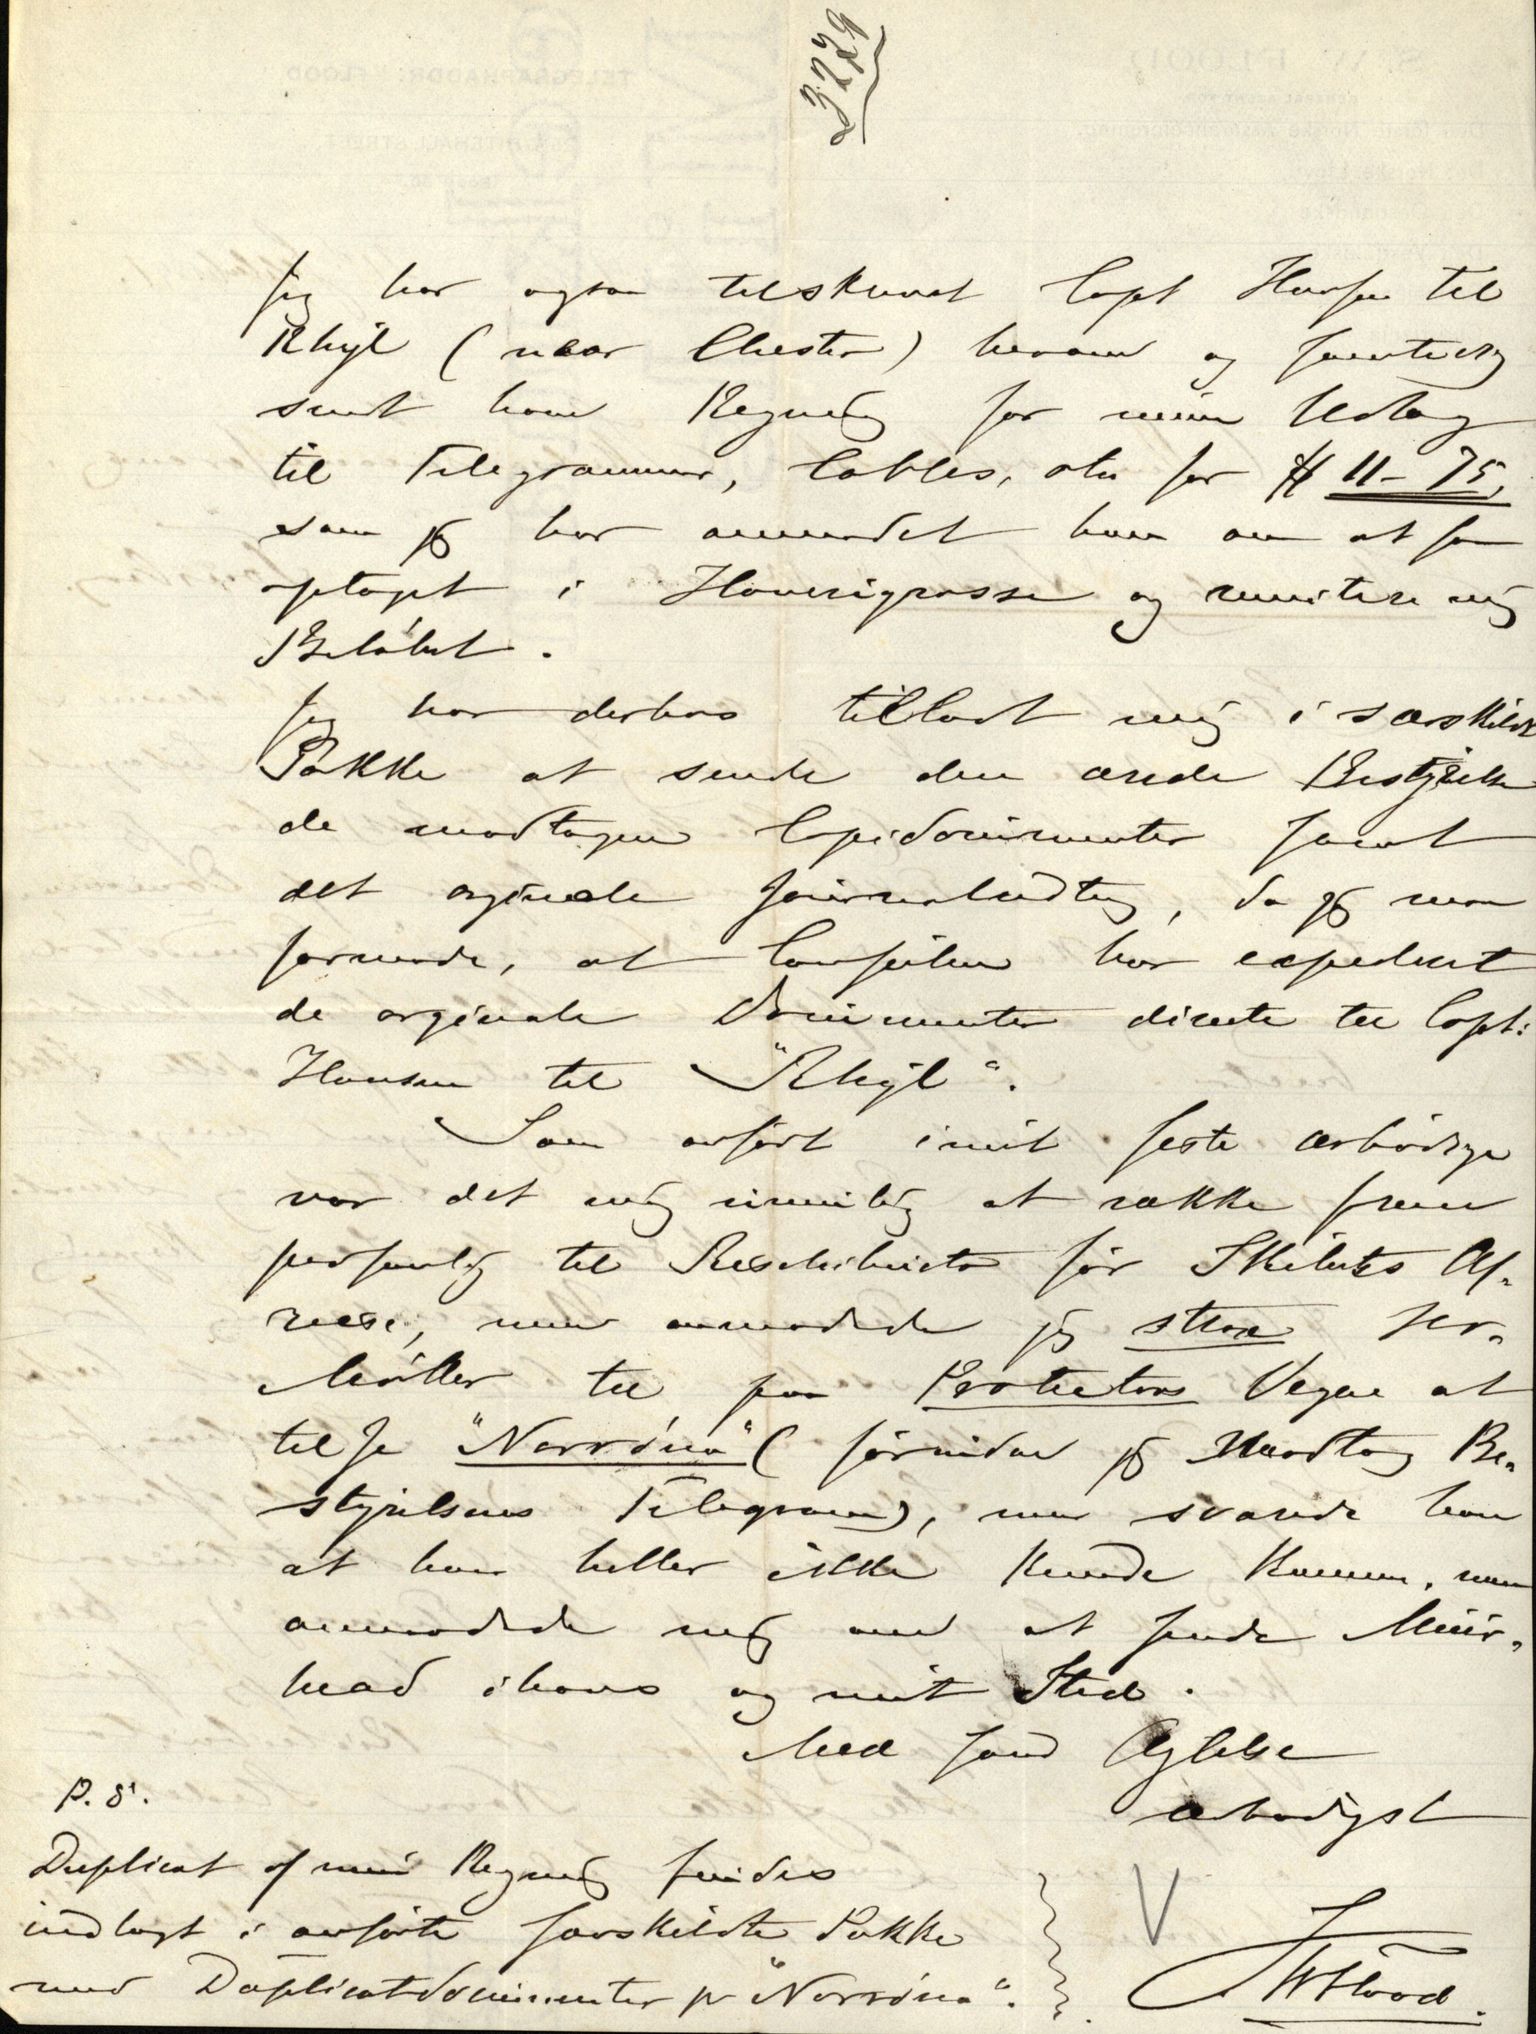 3279
Jeg har ogsaa tilskrevet Capt Hansen til
Rhyl (nær Chester) herom og samtidig
sendt ham Regning for mine Udlæg
til Telegrammer, Cables, etc for $ 11-75,
som jeg har anmodet ham om at faa
optaget i Haverigrosse og remitere mig
Beløbet.
Jeg har derhos tilladt mig i særskildt
Pakke at sende den ærede Bestyrelse
de modtagne Copidocumenter samt
det orginale Journaludtog, da jeg maa
formode, at Consulen har expederet
de orginale Documenter directe til Capt:
Hansen til "Rhyl".
Som anført i mit seste ærbødige
var det mig umulig at række frem
personlig til Restchibucto før Skibets Af-
reise, men anmodede jeg strax Hr.
Møller til paa Protectors Vegne at
tilse "Norröna" (førinden jeg Modtog Be-
styrelsens Telegram), men svarede han
at han heller ikke kunde komme, men
anmodede mig om at sende Muir-
head i hans og mit Sted.
Med sand Agtelse
ærbødigst
SWFlood.
P.S.
Duplicat af min Regning findes
indlagt i anførte særskildte Pakke
med Duplicatdocumenter pr "Norröna".